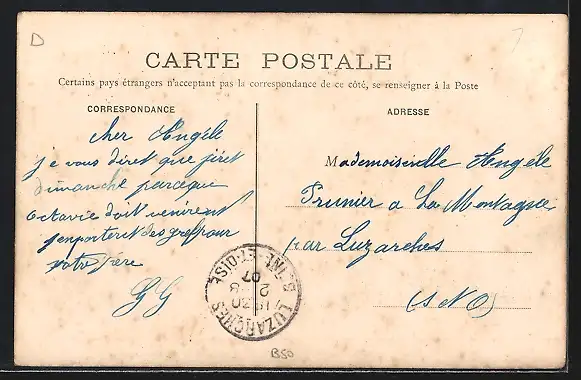 D
CARTE POSTALE
Certains pays étrangers n'acceptant pas la correspondance de ce côté, se renseigner à la Poste
CORRESPONDANCE
cher Angéle
je vous diret que jiret
dimanche parceque
Octavie doit venir et
j'enporteret des gref pour
votre Père
GG
ADRESSE
Mademoiselle Angéle
Prunier a La Montagne
par Luzarches
(S & O)
LUZARCHES
SEINE-ET-OISE
07
B50